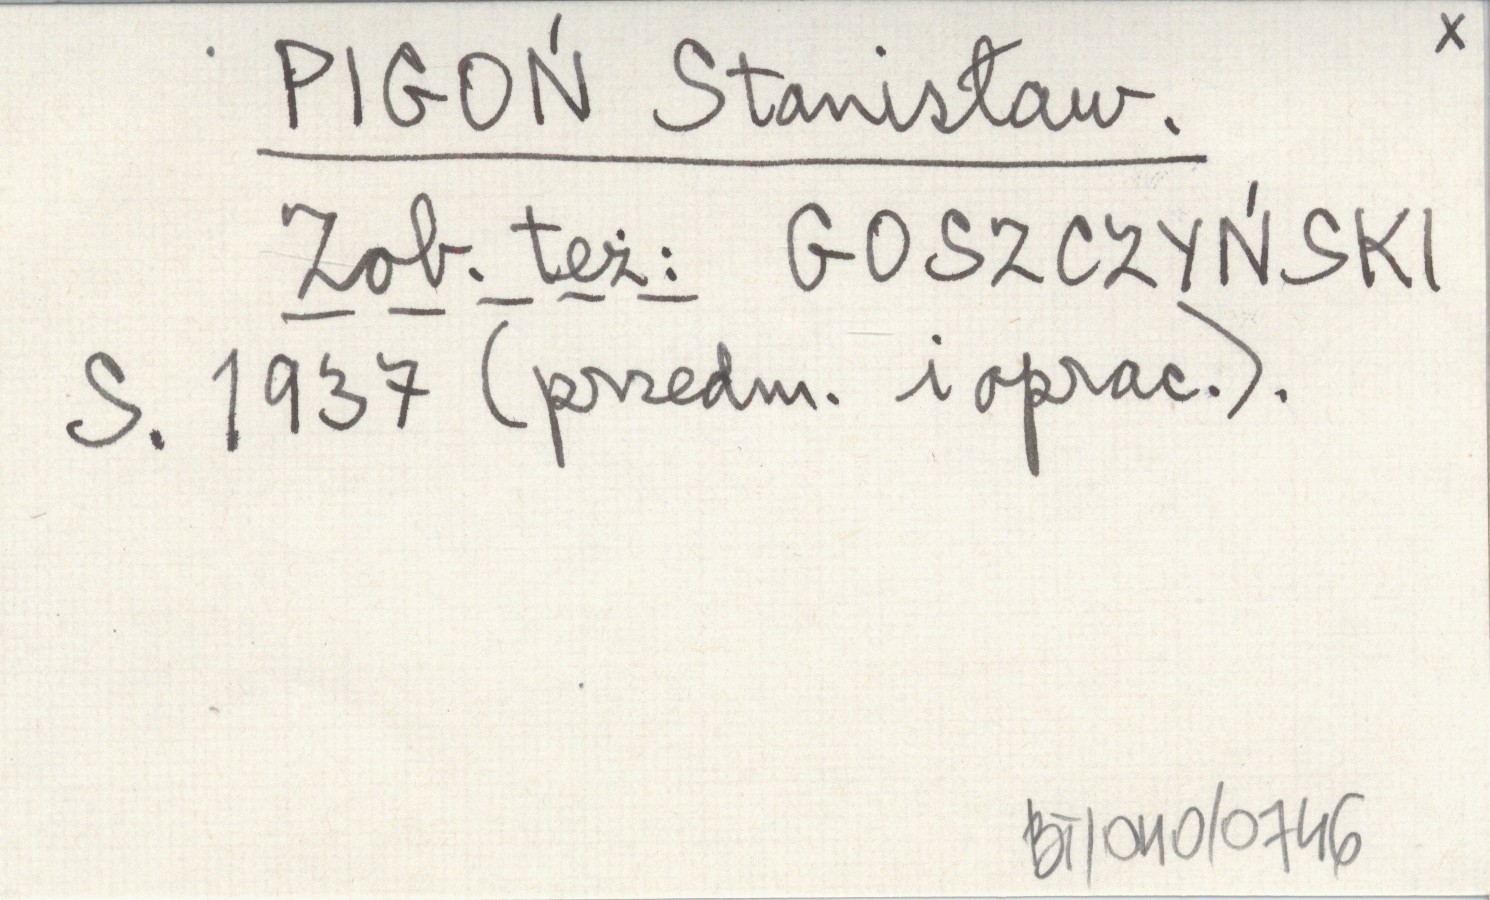 x
PIGOŃ Stanisław.
Zob. też: GOSZCZYŃSKI
S. 1937 (przedm. i oprac.).
BT/040/0746